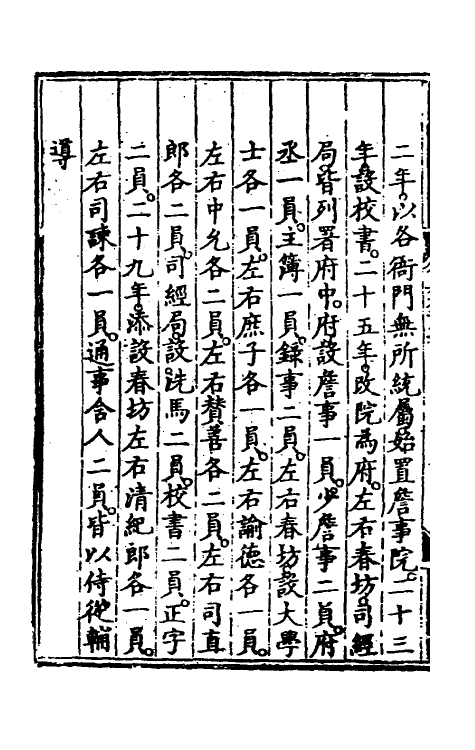 二年。以各衙門無所統屬。始置詹事院。二十三
年。設校書。二十五年。改院為府。左右春坊。司經
局。皆列署府中。府設詹事一員。少詹事二員。府
丞一員。主簿一員。錄事二員。左右春坊。設大學
士各一員。左右庶子各一員。左右諭德各一員。
左右中允各二員。左右贊善各二員。左右司直
郎各二員。司經局。設洗馬二員。校書二員。正字
二員。二十九年。添設春坊左右清紀郎各一員。
左右司諫各一員。通事舍人二員。皆以侍從輔
導